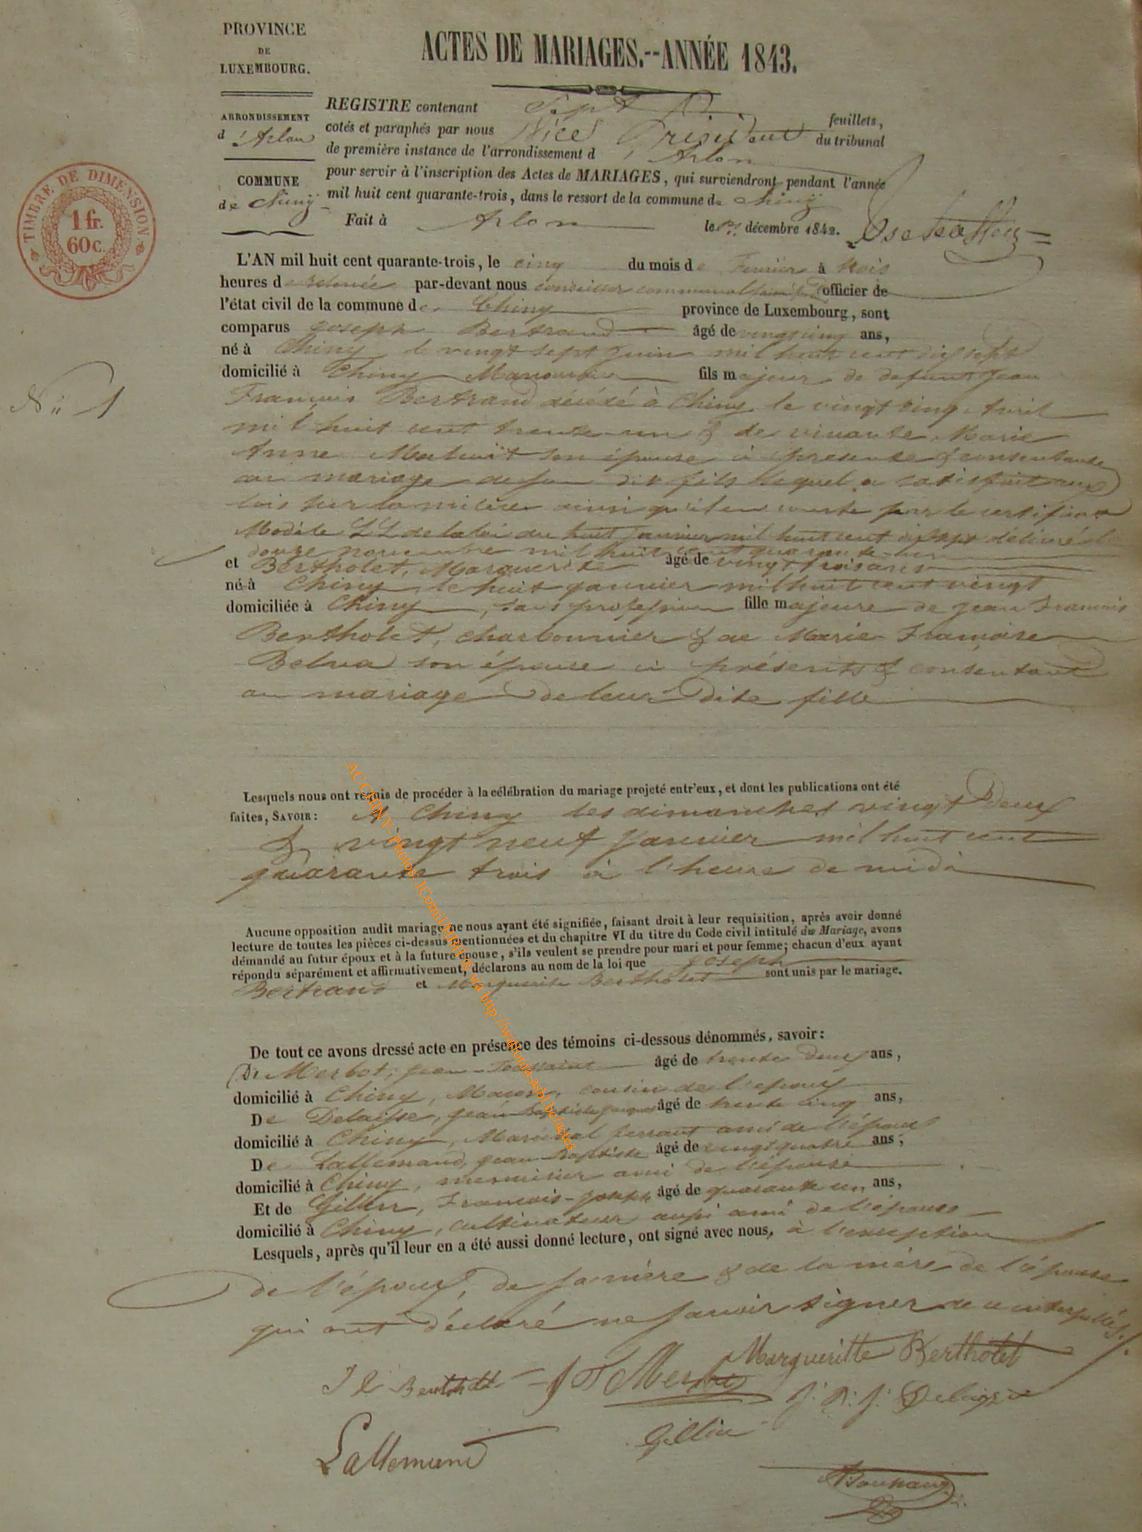 PROVINCE
DE
LUXEMBOURG.
ARRONDISSEMENT
d'Arlon
COMMUNE
de Chiny
TIMBRE DE DIMENSION
1 fr.
60 c.
ACTES DE MARIAGES.--ANNÉE 1843.
REGISTRE contenant Sept feuillets,
cotés et paraphés par nous Vice Président du tribunal
de première instance de l'arrondissement d'Arlon
pour servir à l'inscription des Actes de MARIAGES, qui surviendront pendant l'année
mil huit cent quarante-trois, dans le ressort de la commune de Chiny
Fait à Arlon le décembre 1842.
N° 1
L'AN mil huit cent quarante-trois, le cinq du mois de Fevrier à trois
heures de relevée par-devant nous conseiller communal officier de
l'état civil de la commune de Chiny province de Luxembourg, sont
comparus Joseph Bertrand âgé de vingt cinq ans,
né à Chiny le vingt sept juin mil huit cent dix sept
domicilié à Chiny Manouvrier fils majeur de defunt Jean
François Bertrand décédé à Chiny le vingt cinq Avril
mil huit cent trente un & de vivante Marie
Anne son épouse ci presente & consentante
au mariage de son dit fils lequel a satisfait aux
lois sur la milice ainsi qu'il en conste par le certificat
Modèle LL de la loi du huit janvier mil huit cent dix sept délivré le
douze novembre mil huit cent quarante-
et Bertholet, Marguerite âgé de vingt trois ans
né à Chiny, le huit janvier mil huit cent vingt
domiciliée à Chiny, sans profession fille majeure de Jean François
Bertholet, charbonnier & de Marie Françoise
Belva son épouse ci présents & consentant
au mariage de leur dite fille
Lesquels nous ont requis de procéder à la célébration du mariage projeté entr'eux, et dont les publications ont été
faites, SAVOIR: A Chiny les dimanches vingt deux
& vingt neuf janvier mil huit cent
quarante trois à l'heure de midi
Aucune opposition audit mariage ne nous ayant été signifiée, faisant droit à leur requisition, après avoir donné
lecture de toutes les pièces ci-dessus mentionnées et du chapitre VI du titre du Code civil intitulé du Mariage, avons
démandé au futur époux et à la future épouse, s'ils veulent se prendre pour mari et pour femme; chacun d'eux ayant
répondu séparément et affirmativement, déclarons au nom de la loi que Joseph
Bertrand et Marguerite Bertholet sont unis par le mariage.
De tout ce avons dressé acte en présence des témoins ci-dessous dénommés, savoir:
De Merbot, jean-Toussaint âgé de trente deux ans,
domicilié à Chiny, Maçon, cousin de l'époux
De Delaisse, jean Baptiste âgé de trente cinq ans,
domicilié à Chiny, Maréchal ferrant ami de l'époux
De Lallemand, jean-Baptiste âgé de vingt quatre ans;
domicilié à Chiny, menuisier ami de l'épouse
Et de Gillin, François-joseph âgé de quarante un, ans,
domicilié à Chiny, cultivateur aussi ami de l'épouse
Lesquels, après qu'il leur en a été aussi donné lecture, ont signé avec nous, à l'exception
de l'époux, de sa mère & de la mère de l'épouse
qui ont déclaré ne savoir signer de ce interpellés.
Margueritte Bertholet
Lallemand
Gillin